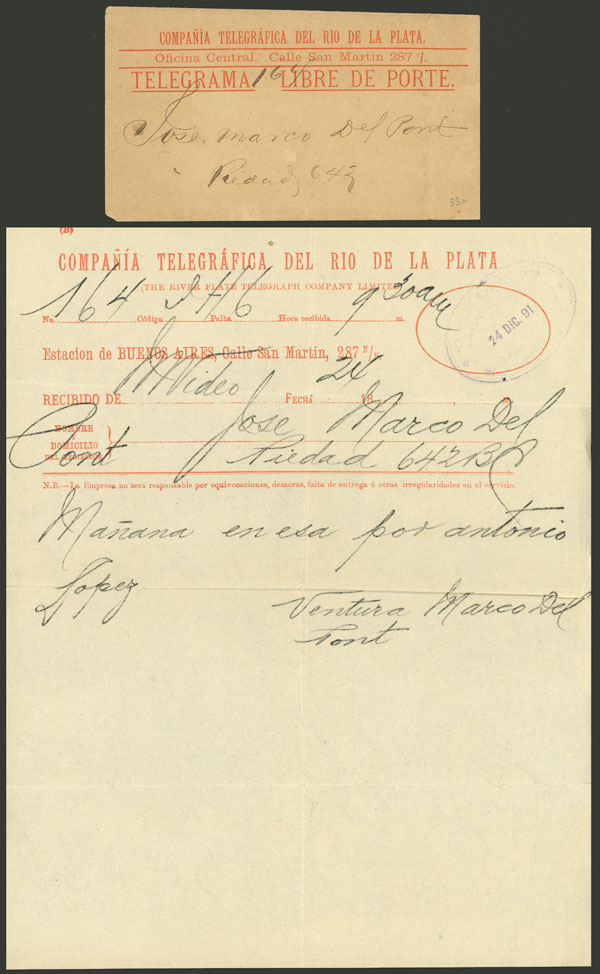 COMPAÑÍA TELEGRÁFICA DEL RIO DE LA PLATA.
Oficina Central. Calle San Martin 287 n/.
TELEGRAMA 164 LIBRE DE PORTE.
Jose. Marco Del Pont
Piedad 642
(B)
COMPAÑÍA TELEGRÁFICA DEL RIO DE LA PLATA
(THE RIVER PLATE TELEGRAPH COMPANY LIMITED)
164 16 9 30am
No. Código Palbs. Hora recibida m.
24 DIC. 91
Estacion de BUENOS AIRES, Calle San Martin, 287 n/.
RECIBIDO DE MVideo FECHA 24 18
NOMBRE Y DOMICILIO DEL Jose Marco Del
Pont Piedad 642 BA
N.B.—La Empresa no será responsable por equivocaciones, demoras, falta de entrega ú otras irregularidades en el servicio.
Mañana en esa por antonio
Lopez
Ventura Marco Del
Pont